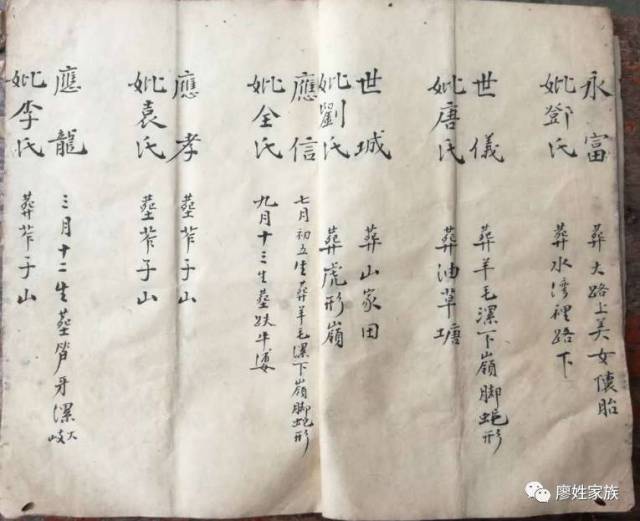 永富 葬大路上美女懷胎
妣鄧氏 葬水湾裡路下
世儀 葬羊毛漯下嶺脚蛇形
妣唐氏 葬油草塘
世城 葬山家田
妣劉氏 葬虎形嶺
應信 七月初五生葬羊毛漯下嶺脚蛇形
妣全氏 九月十三生塟牛
應孝 塟苲子山
妣袁氏 塟苲子山
應龍 三月十二生塟笋牙漯大岐
妣李氏 葬苲子山
廖姓家族